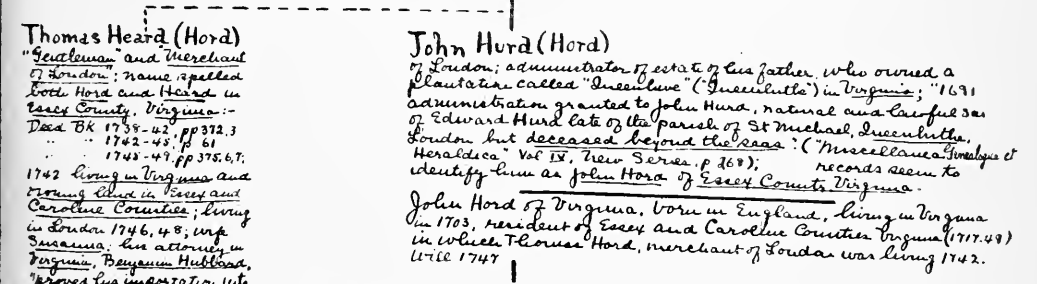 Thomas Heard (Hord)
"Gentleman" and "Merchant
of London"; name spelled
both Hord and Heard in
Essex County, Virginia:-
Deed Bk 1738-42, pp 372.3
" " 1742-45, p 61
" " 1745-49, pp 375.6,7;
1742 living in Virginia and
owning land in Essex and
Caroline Counties; living
in London 1746, 48; wife
Susanna; his attorney in
Virginia, Benjamin Hubbard,
"proves his importation into
John Hurd (Hord)
of London; administrator of estate of his father, who owned a
plantation called "Queenhive" ("Queenhithe") in Virginia; "1691
administration granted to John Hurd, natural and lawful son
of Edward Hurd late of the parish of St Michael, Queenhithe,
London but deceased beyond the seas": ("Miscellanea Genealogica et
Heraldica" Vol IV, New Series, p 268); records seem to
identify him as John Hord of Essex County Virginia.
John Hord of Virginia, born in England, living in Virginia
in 1703, resident of Essex and Caroline Counties Virginia (1717-48)
in which Thomas Hord, merchant of London was living 1742.
Will 1747